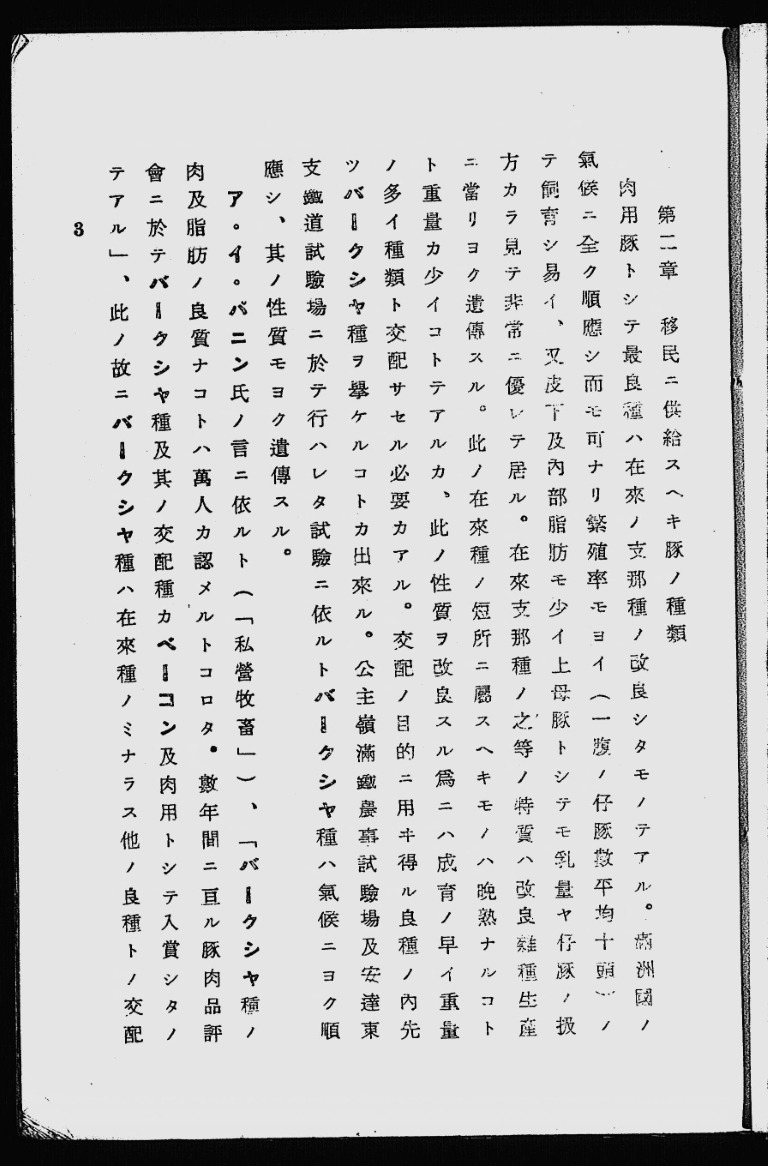 第二章　移民ニ供給スヘキ豚ノ種類
肉用豚トシテ最良種ハ在來ノ支那種ノ改良シタモノテアル。滿洲國ノ
氣候ニ全ク順應シ而モ可ナリ繁殖率モヨイ（一腹ノ仔豚數平均十頭）ノ
テ飼育シ易イ、又皮下及內部脂肪モ少イ上母豚トシテモ乳量ヤ仔豚ノ扱
方カラ見テ非常ニ優レテ居ル。在來支那種ノ之等ノ特質ハ改良雜種生產
ニ當リヨク遺傳スル。此ノ在來種ノ短所ニ屬スヘキモノハ晚熟ナルコト
ト重量カ少イコトテアルカ、此ノ性質ヲ改良スル爲ニハ成育ノ早イ重量
ノ多イ種類ト交配サセル必要カアル。交配ノ目的ニ用ヰ得ル良種ノ內先
ツバークシヤ種ヲ擧ケルコトカ出來ル。公主嶺滿鐵農事試驗場及安達東
支鐵道試驗場ニ於テ行ハレタ試驗ニ依ルトバークシヤ種ハ氣候ニヨク順
應シ、其ノ性質モヨク遺傳スル。
ア・イ・バニン氏ノ言ニ依ルト（「私營牧畜」）、「バークシヤ種ノ
肉及脂肪ノ良質ナコトハ萬人カ認メルトコロタ。數年間ニ亘ル豚肉品評
會ニ於テバークシヤ種及其ノ交配種カベーコン及肉用トシテ入賞シタノ
テアル」、此ノ故ニバークシヤ種ハ在來種ノミナラス他ノ良種トノ交配
3